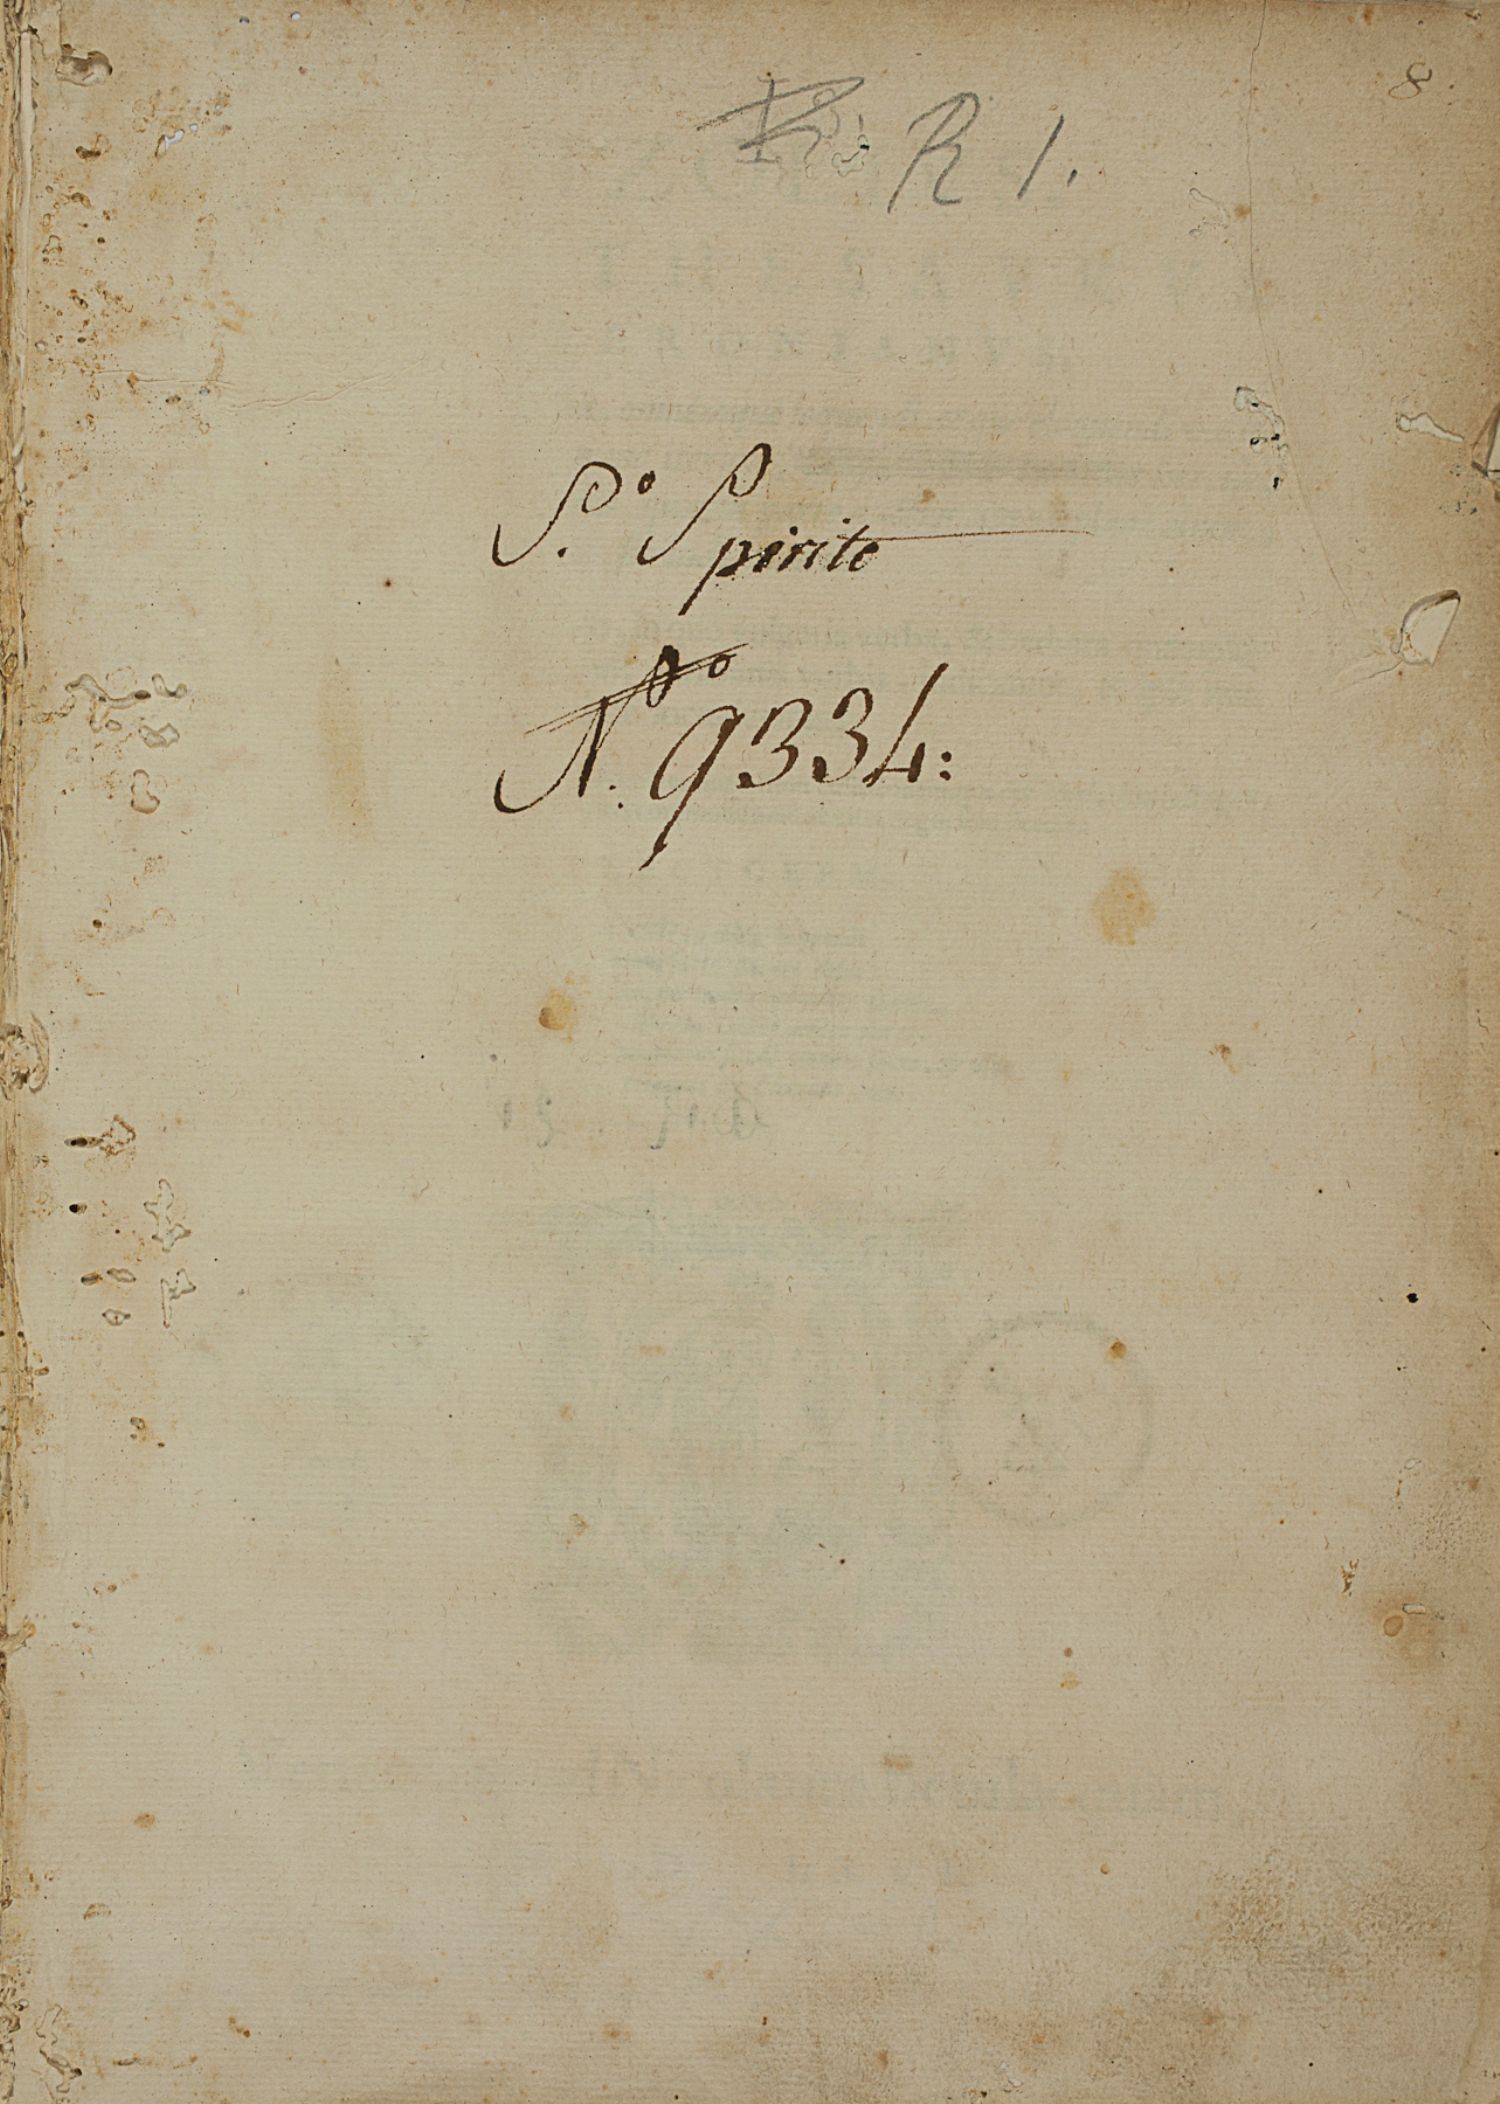 8.
R 1.
S.º Spirito
N.º 9334: